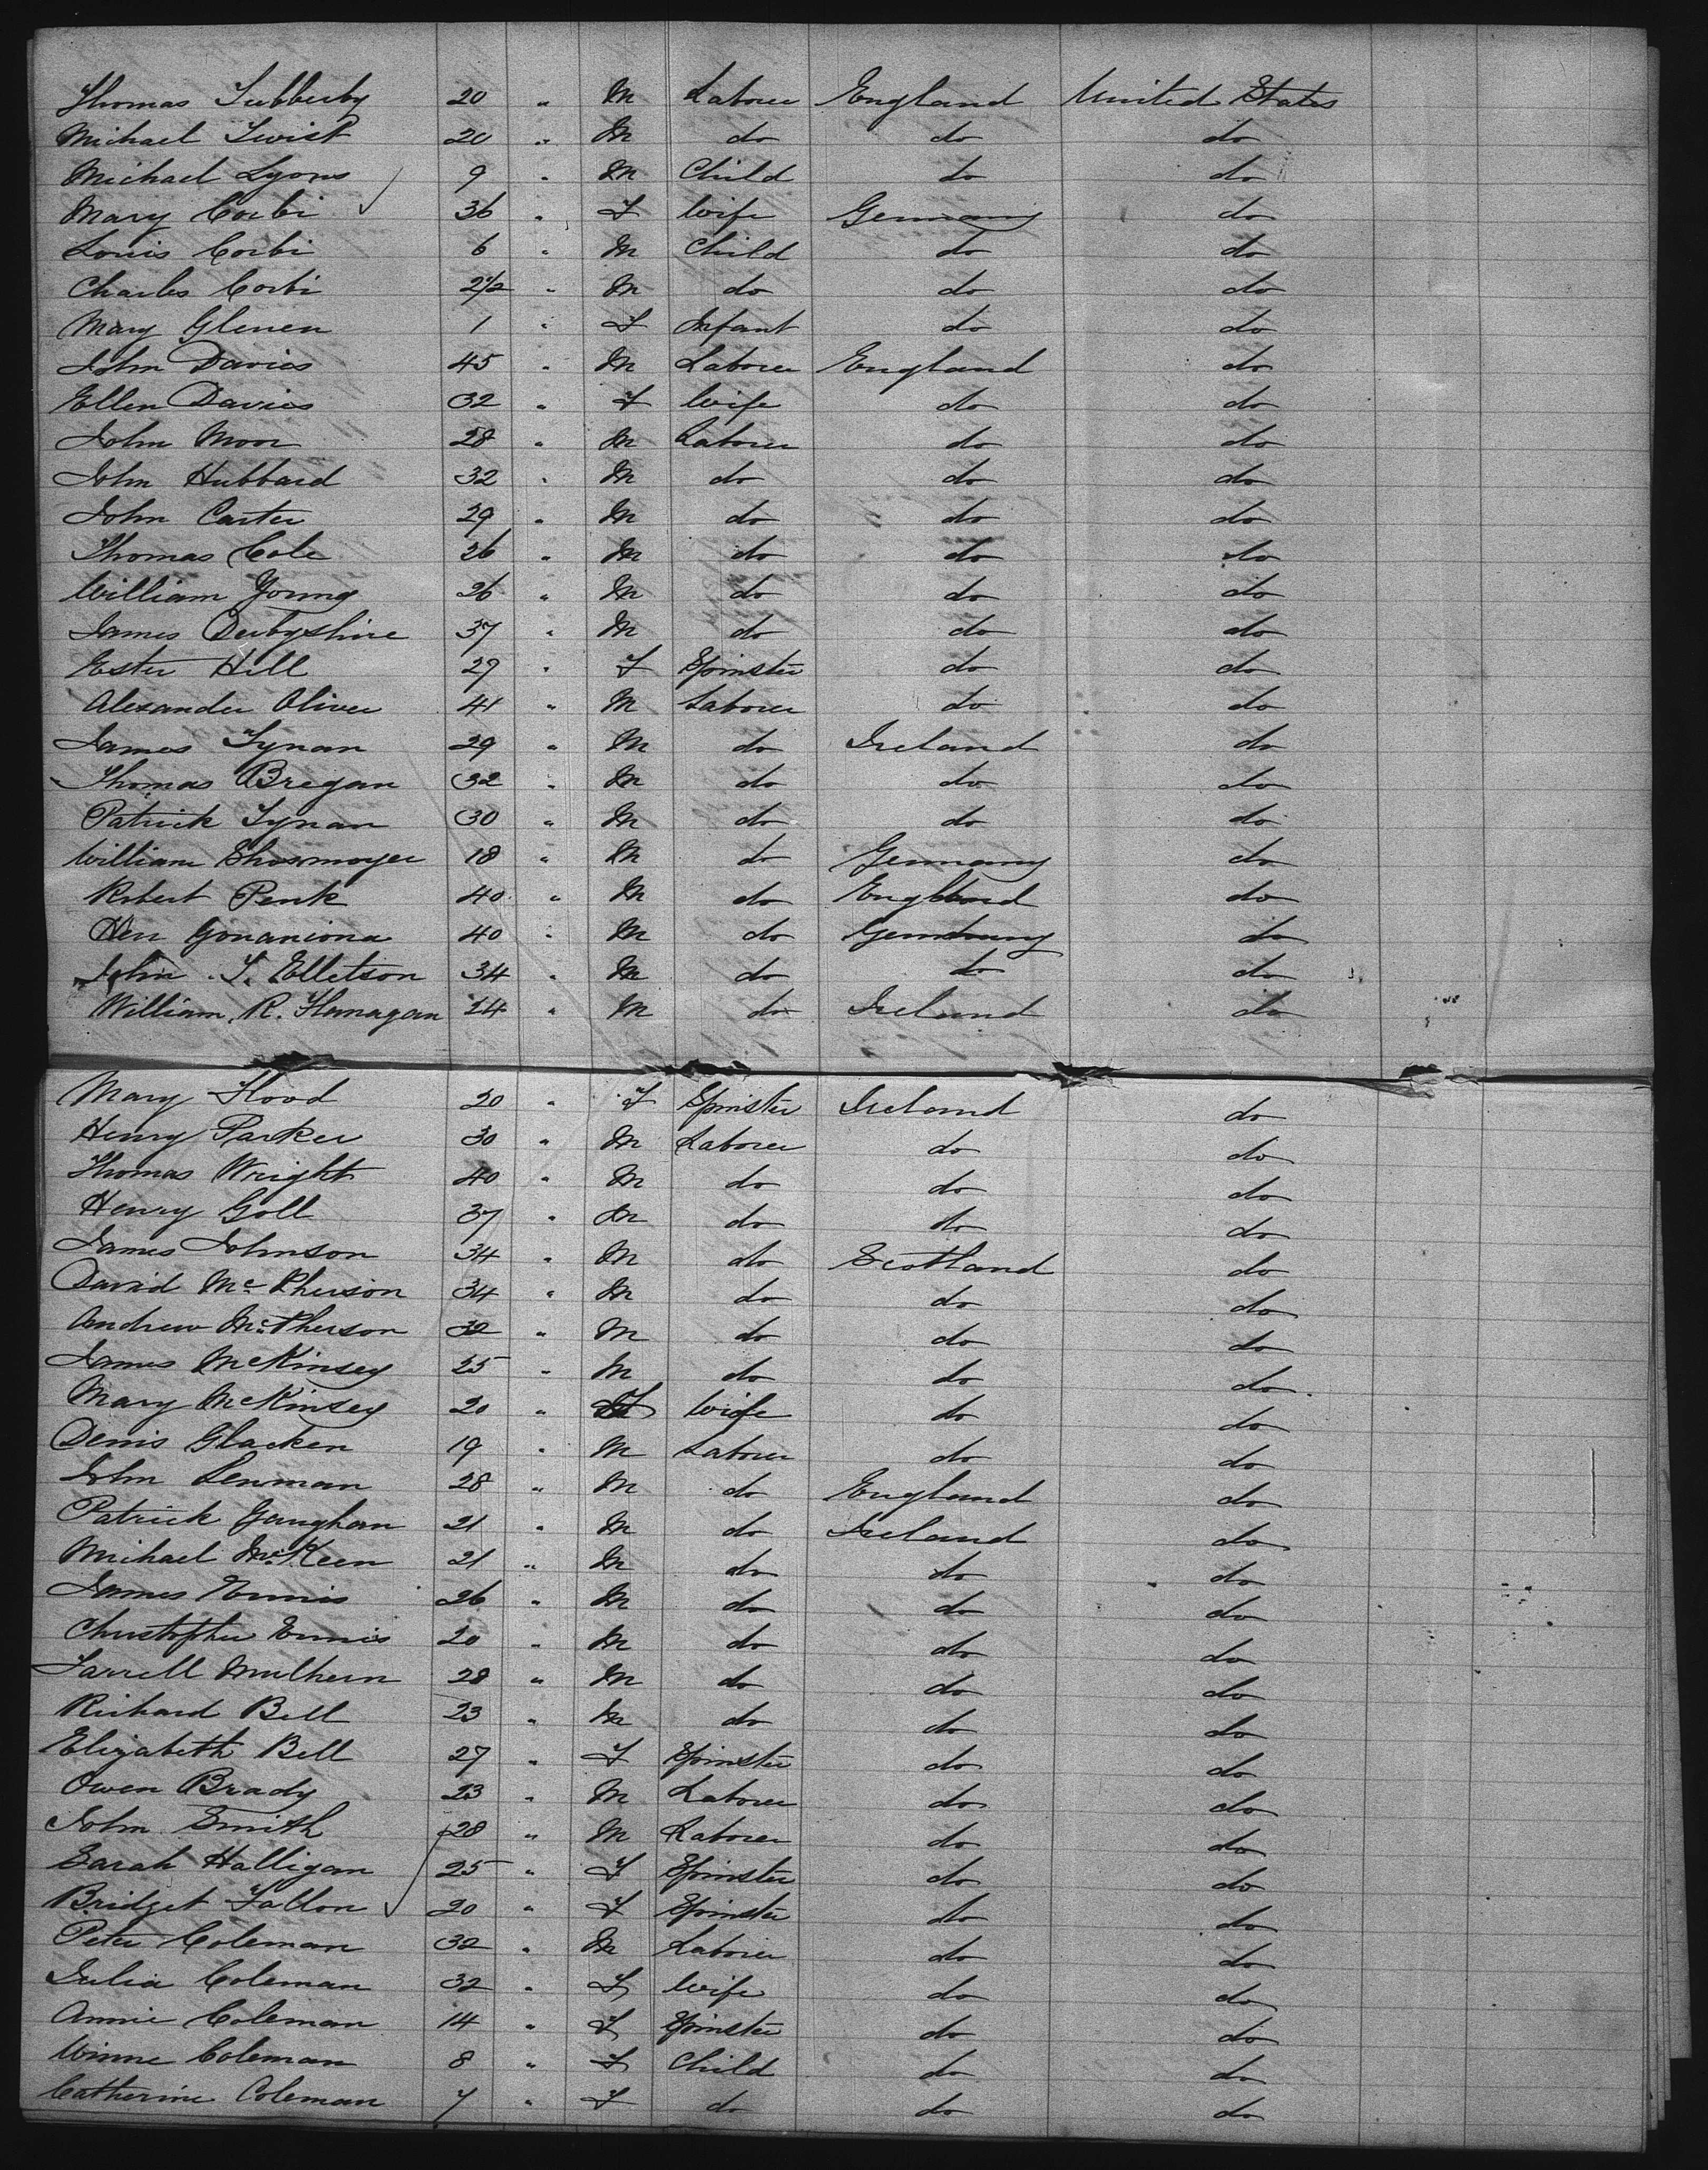 Thomas Tubberby 20 " M Laborer England United States
Michael Twist 20 " M do do do
Michael Lyons 9 " M Child do do
Mary Corbi 36 " F Wife Germany do
Louis Corbi 6 " M Child do do
Charles Corbi 2 1/2 " M do do do
Mary Glenen 1 " F Infant do do
John Davies 45 " M Laborer England do
Ellen Davies 32 " F Wife do do
John Moor 28 " M Laborer do do
John Hubbard 32 " M do do do
John Carter 29 " M do do do
Thomas Cole 26 " M do do do
William Young 26 " M do do do
James Derbyshire 37 " M do do do
Ester Hill 29 " F Spinster do do
Alexander Oliver 41 " M Laborer do do
James Tynan 29 " M do Ireland do
Thomas Bregan 32 " M do do do
Patrick Tynan 30 " M do do do
William 18 " M do Germany do
Robert Penk 40 " M do England do
40 " M do Germany do
John T. Elletson 34 " M do do do
William R. Flanagan 24 " M do Ireland do
Mary Flood 20 " F Spinster Ireland do
Henry Parker 30 " M Laborer do do
Thomas Wright 40 " M do do do
Henry Goll 37 " M do do do
James Johnson 34 " M do Scotland do
David McPherson 34 " M do do do
Andrew McPherson 32 " M do do do
James McKinsey 25 " M do do do
Mary McKinsey 20 " F Wife do do
Denis Glacken 19 " M Laborer do do
John Lenman 28 " M do England do
Patrick Gaughan 21 " M do Ireland do
Michael McKeen 21 " M do do do
James Ennis 26 " M do do do
Christopher Ennis 20 " M do do do
Farrell Mulhern 28 " M do do do
Richard Bell 23 " M do do do
Elizabeth Bell 27 " F Spinster do do
Owen Brady 23 " M Laborer do do
John Smith 28 " M Laborer do do
Sarah Halligan 25 " F Spinster do do
Bridget Fallon 20 " F Spinster do do
Peter Coleman 32 " M Laborer do do
Julia Coleman 32 " F Wife do do
Annie Coleman 14 " F Spinster do do
Winne Coleman 8 " F Child do do
Catherine Coleman 7 " F do do do